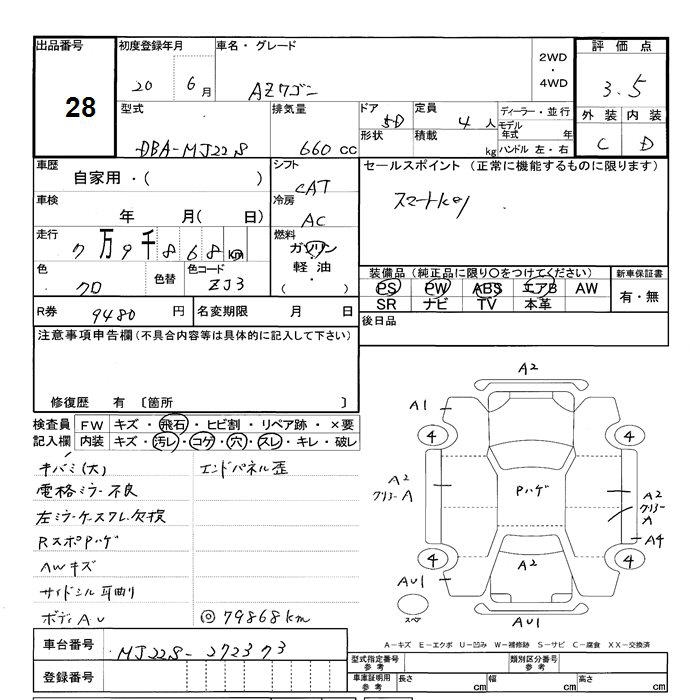 出品番号 初度登録年月 車名・グレード 評価点
28
20 6月 AZワゴン 2WD・4WD 3.5
型式 排気量 ドア 定員 ディーラー・並行
DBA-MJ22S 660cc 5D 4人 モデル年式 年
形状 積載 kg ハンドル 左・右
外装 内装
C D
車歴 シフト セールスポイント (正常に機能するものに限ります)
自家用・( ) CAT スマートkey
車検 冷房
年 月( 日) AC
走行 燃料
7万9千868km ガソリン
軽油
・( )
色 色替 色コード
クロ ZJ3
装備品 (純正品に限り○をつけてください) 新車保証書
PS PW ABS エアB AW 有・無
SR ナビ TV 本革
R券 9480円 名変期限 月 日 後日品
注意事項申告欄(不具合内容等は具体的に記入して下さい)
修復歴 有 〔箇所 〕
検査員 FW キズ・飛石・ヒビ割・リペア跡・×要
記入欄 内装 キズ・汚レ・コゲ・穴・スレ・キレ・破レ
キバミ(大) エンドパネル歪
電格ミラー不良
左ミラーケースワレ欠損
RスポPハゲ
AWキズ
サイドシル耳曲り
ボディAU ◎79868km
A2
A1
4 4
A2 Pハゲ A2
クリヤーA クリヤーA
A4
4 A2 4
AU1
スペア AU1
A-キズ E-エクボ U-凹み W-補修跡 S-サビ C-腐食 XX-交換済
車台番号 MJ22S-272373
登録番号
型式指定番号 参考 類別区分番号 参考
車庫証明用 参考 長さ cm 幅 cm 高さ cm